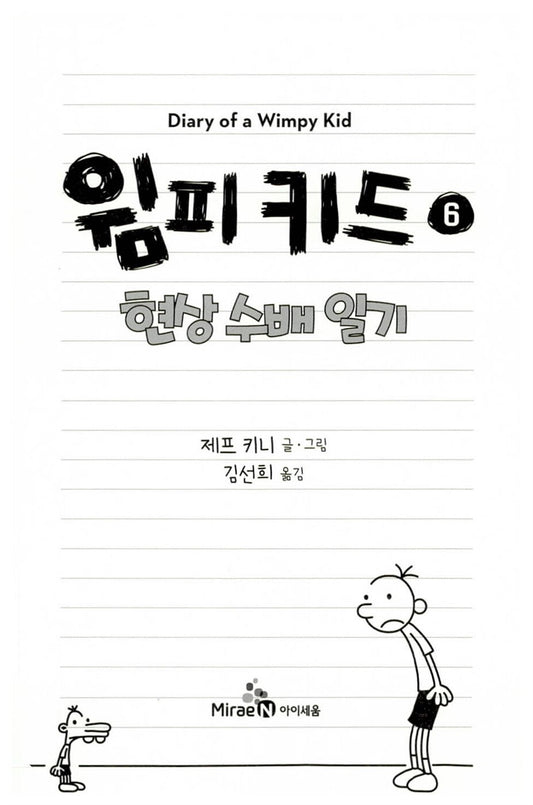 Diary of a Wimpy Kid
윔피 키드 6
현상 수배 일기
제프 키니 글·그림
김선희 옮김
MiraeN 아이세움